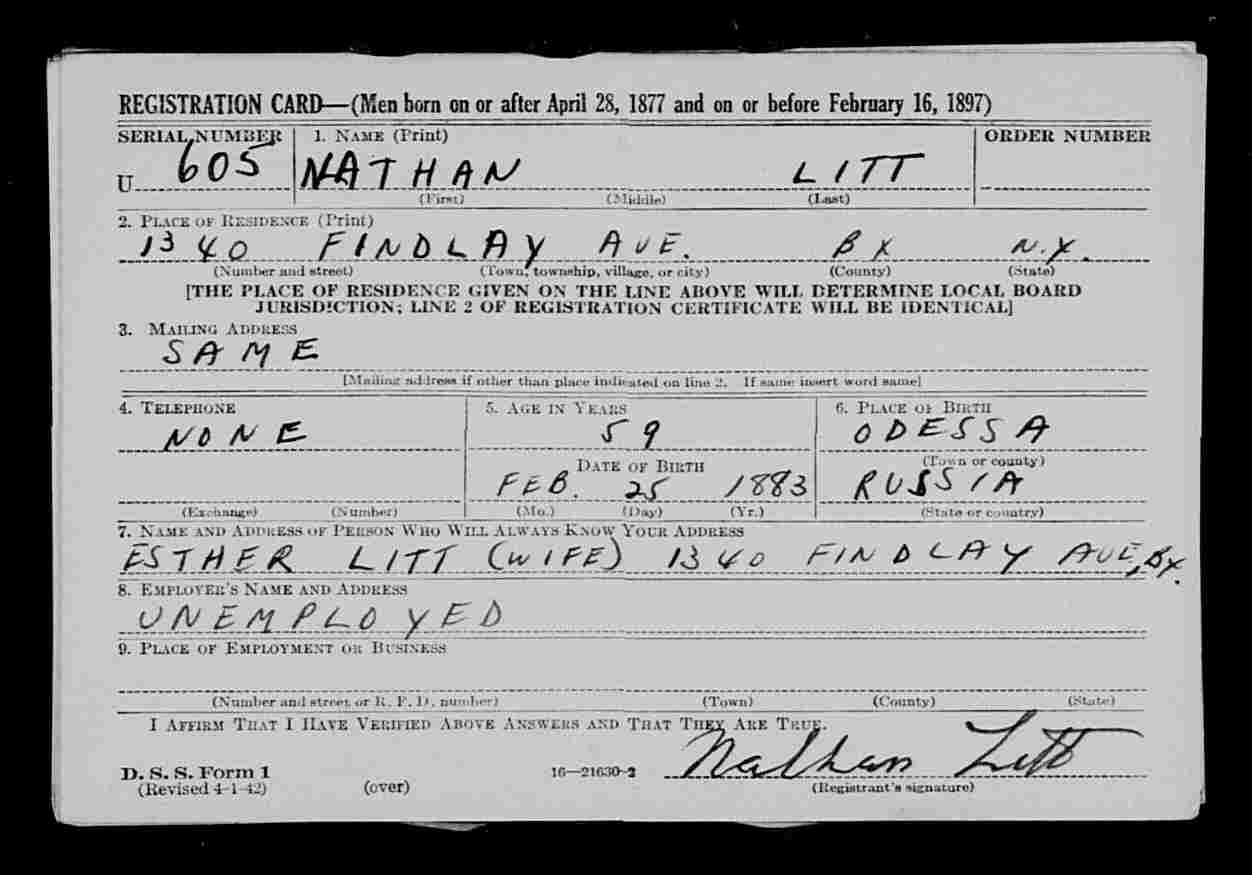 REGISTRATION CARD—(Men born on or after April 28, 1877 and on or before February 16, 1897)
SERIAL NUMBER 1. NAME (Print) ORDER NUMBER
U 605 NATHAN LITT
(First) (Middle) (Last)
2. PLACE OF RESIDENCE (Print)
1340 FINDLAY AVE. BX N.Y.
(Number and street) (Town, township, village, or city) (County) (State)
[THE PLACE OF RESIDENCE GIVEN ON THE LINE ABOVE WILL DETERMINE LOCAL BOARD
JURISDICTION; LINE 2 OF REGISTRATION CERTIFICATE WILL BE IDENTICAL]
3. MAILING ADDRESS
SAME
[Mailing address if other than place indicated on line 2. If same insert word same]
4. TELEPHONE 5. AGE IN YEARS 6. PLACE OF BIRTH
NONE 59 ODESSA
DATE OF BIRTH (Town or county)
FEB. 25 1883 RUSSIA
(Exchange) (Number) (Mo.) (Day) (Yr.) (State or country)
7. NAME AND ADDRESS OF PERSON WHO WILL ALWAYS KNOW YOUR ADDRESS
ESTHER LITT (WIFE) 1340 FINDLAY AVE, BX.
8. EMPLOYER'S NAME AND ADDRESS
UNEMPLOYED
9. PLACE OF EMPLOYMENT OR BUSINESS
(Number and street or R. F. D. number) (Town) (County) (State)
I AFFIRM THAT I HAVE VERIFIED ABOVE ANSWERS AND THAT THEY ARE TRUE.
Nathan Litt
D. S. S. Form 1 16—21630-2
(Revised 4-1-42) (over) (Registrant's signature)